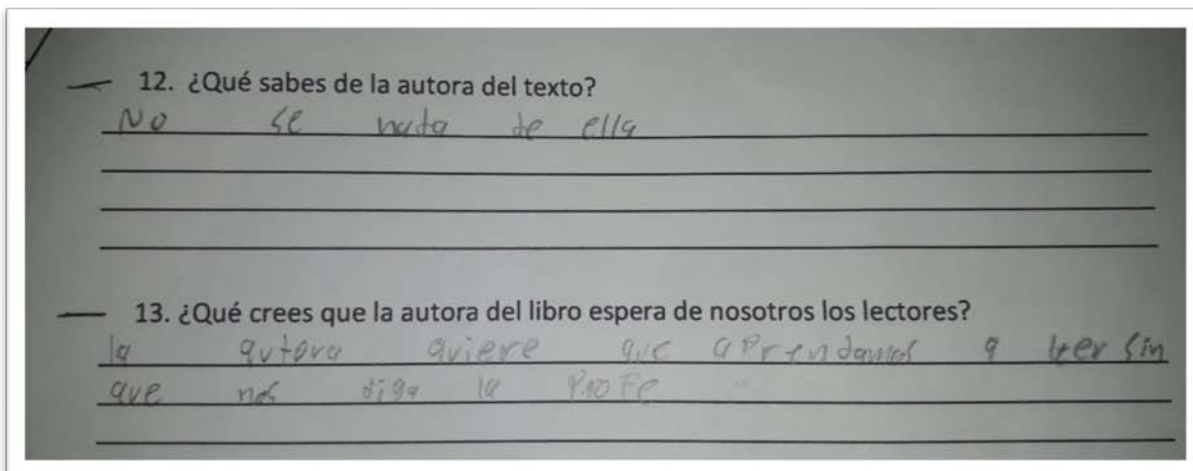 12. ¿Qué sabes de la autora del texto?
No se nada de ella
13. ¿Qué crees que la autora del libro espera de nosotros los lectores?
la autora quiere que aprendamos a leer sin
que nos diga la profe